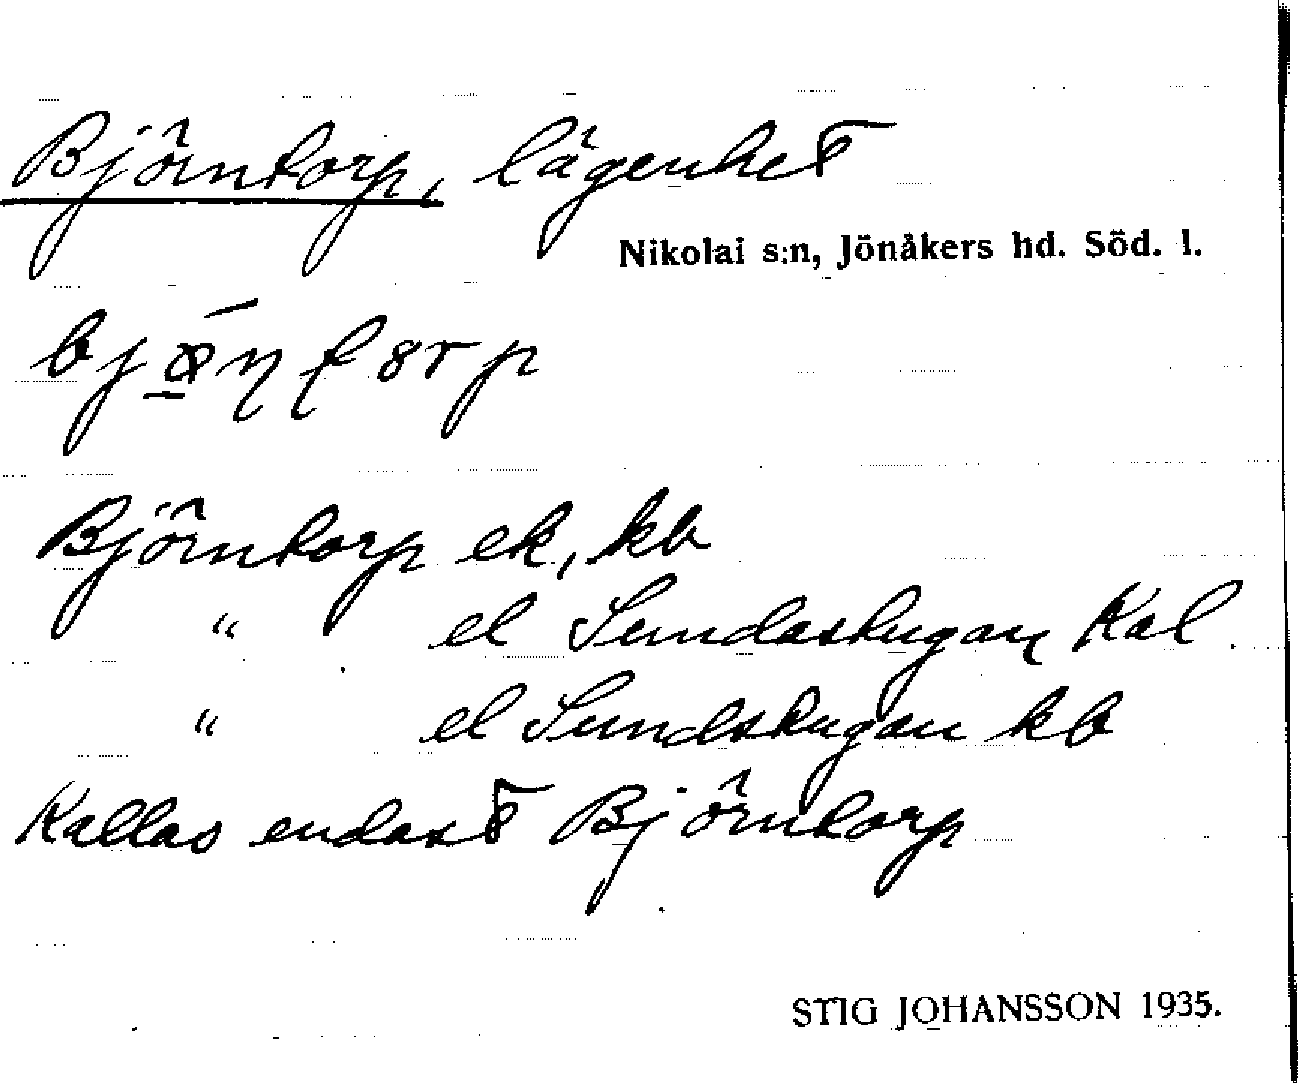 Björntorp, lägenhet
Nikolai s:n, Jönåkers hd. Söd. l.
Björntorp ek, kb
" el Sundaskugan Kal.
" el Sundskugan kb
Kallas endast Björntorp
STIG JOHANSSON 1935.